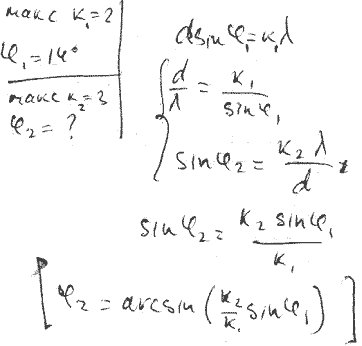 макс к₁=2
φ₁=14°
макс к₂=3
φ₂=?
dsinφ₁=к₁λ
d/λ = к₁/sinφ₁
sinφ₂ = к₂λ/d
sinφ₂ = к₂ sinφ₁/к₁
[φ₂ = arcsin (к₂/к₁ sinφ₁)]